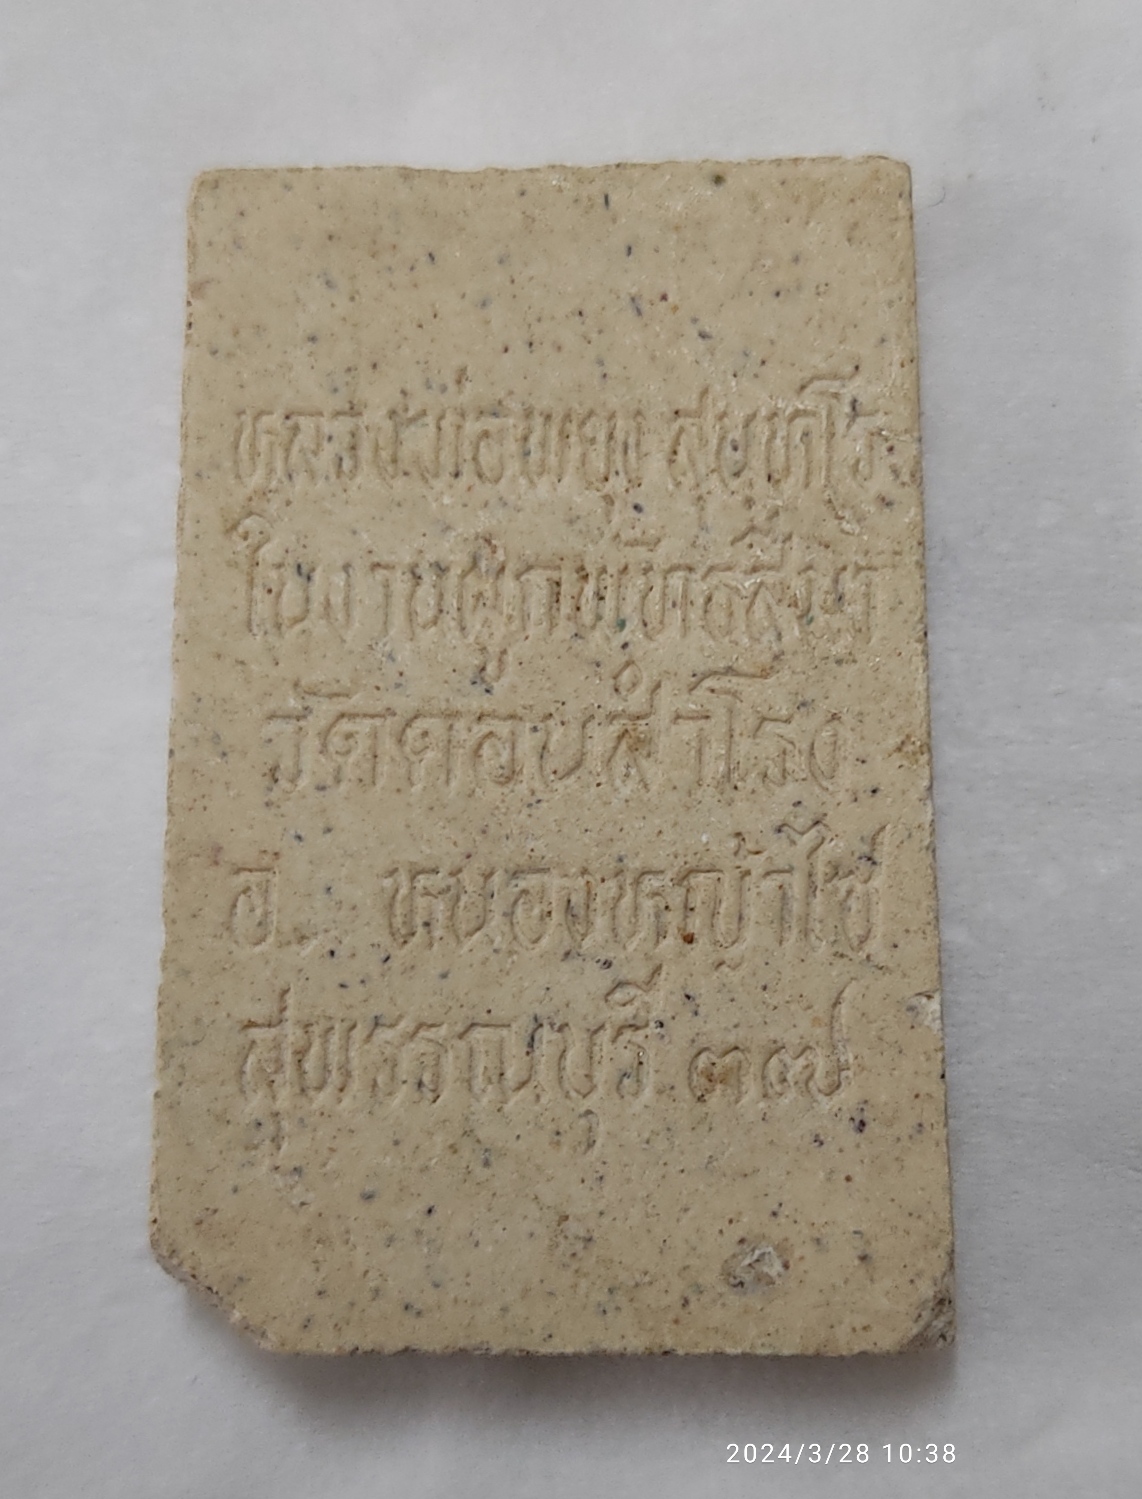 หลวงพ่อพยนต์ สุนฺทโร
ในงานผูกพัทธสีมา
วัดดอนสำโรง
อ. หนองหญ้าไซ
สุพรรณบุรี ๓๗
2024/3/28 10:38